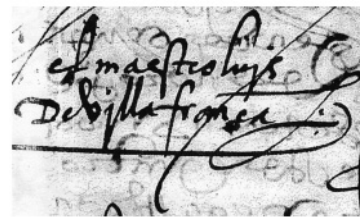 el maestro luys
De villa franca